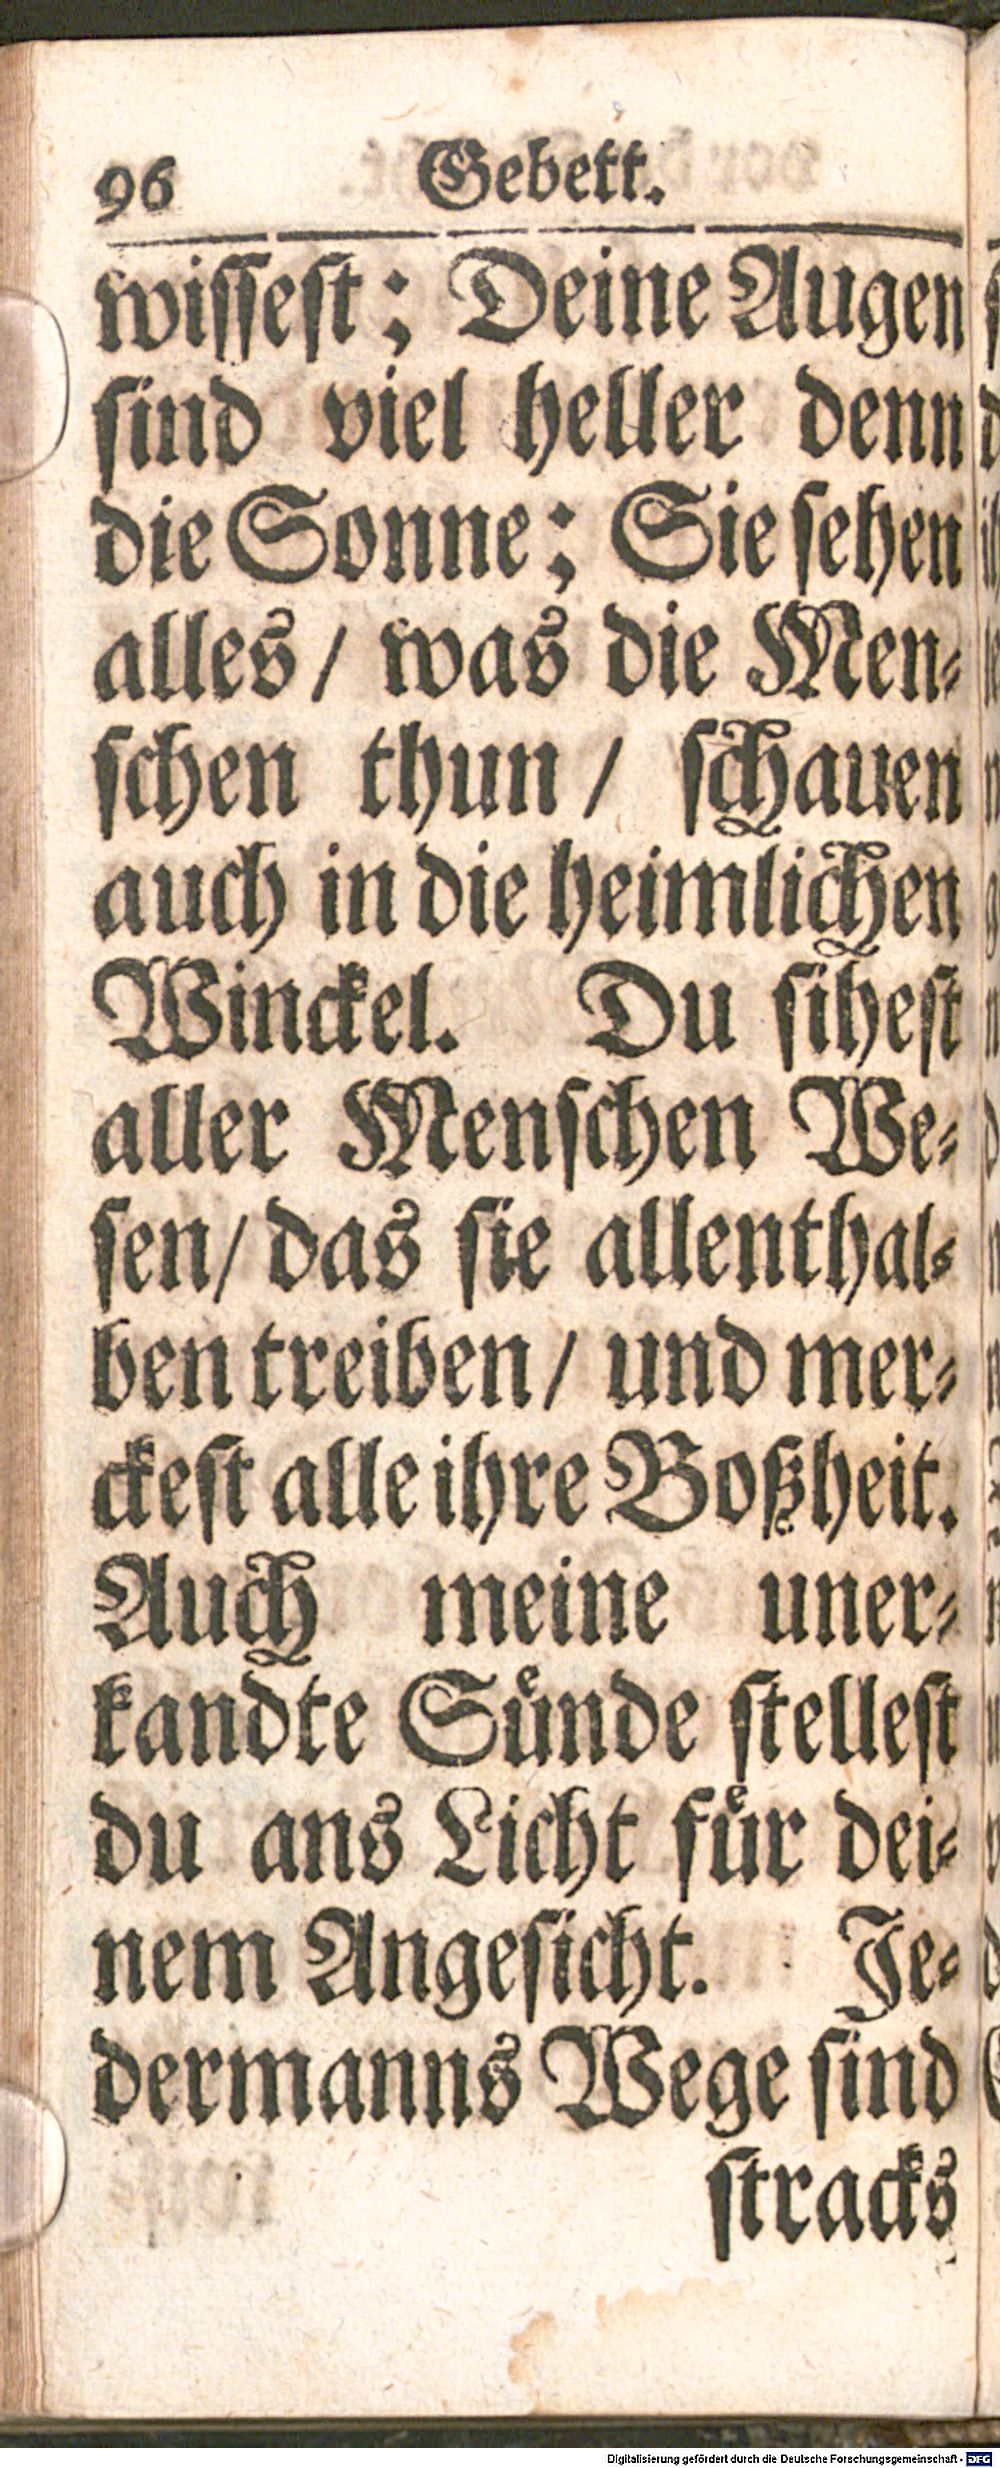 96 Gebett.
wiſſeſt; Deine Augen
ſind viel heller denn
die Sonne; Sie ſehen
alles / was die Men⸗
ſchen thun / ſchauen
auch in die heimlichen
Winckel. Du ſiheſt
aller Menſchen We⸗
ſen / das ſie allenthal⸗
ben treiben / und mer⸗
ckeſt alle ihre Boßheit.
Auch meine uner⸗
kandte Suͤnde ſtelleſt
du ans Licht fuͤr dei⸗
nem Angeſicht. Je⸗
dermanns Wege ſind
ſtracks
Digitalisierung gefördert durch die Deutsche Forschungsgemeinschaft - DFG